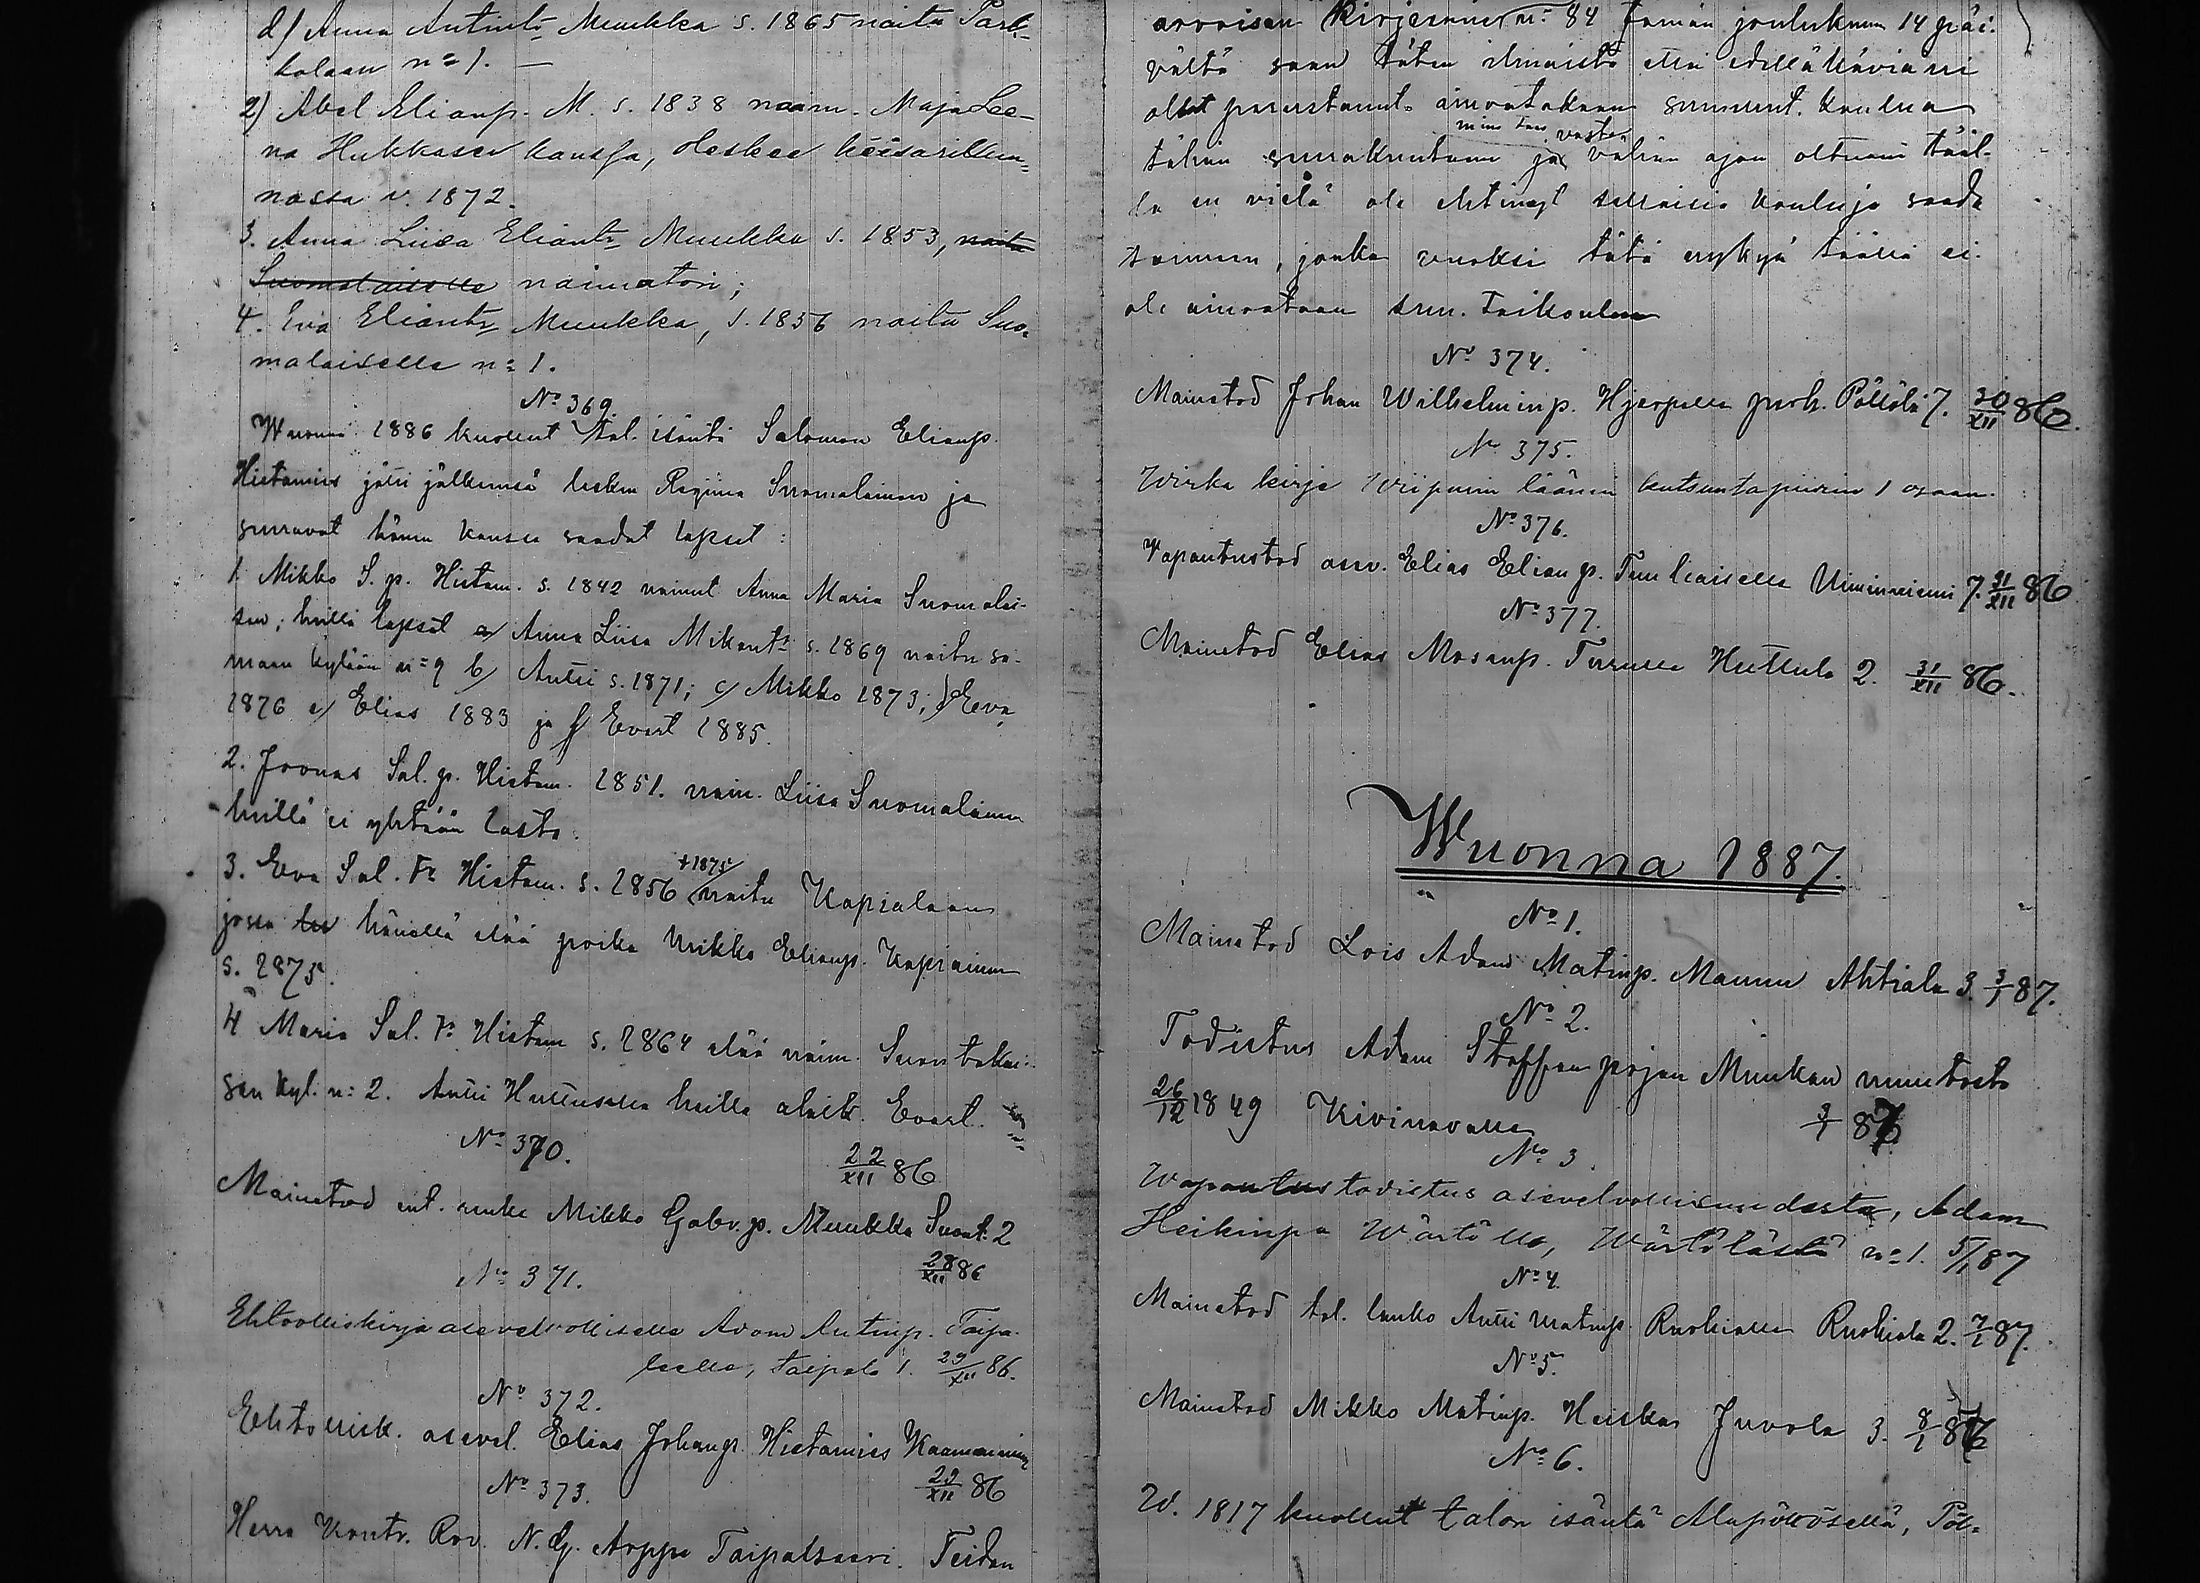 d) Anna Antint. Muukka s. 1865 naitu Park-
kolaan n:o 1. —
2) Abel Elianp. M. s. 1838 naim. Maja Lee-
na Hukkasen kanssa, oleskee keisarikun-
nassa v. 1872.
3. Anna Liisa Eliantr. Muukka s. 1853, naitu
Suomalaiselle naimaton;
4. Eva Eliantr. Muukka, s. 1856 naitu Suo-
malaiselle n:o 1.
No 369.
Wuonna 1886 kuollut tal. isäntä Salomon Elianp.
Hietamies jätti jälkeensä lesken Regiina Suomalainen ja
seuraavat hänen kanssa saadut lapset:
1. Mikko S. p. Hietam. s. 1842 nainut Anna Maria Suomalai-
sen; heillä lapset a) Anna Liisa Mikont. s. 1869 naitu sa-
maan kylään n:o 9 b) Antti s. 1871; c) Mikko 1873; d) Eva
1876 e) Elias 1883 ja f) Evert 1885.
2. Joonas Sal. p. Hietam. 1851. naim. Liisa Suomalainen
heillä ei yhtään lasta.
3. Eva Sal. tr. Hietam. s. 1856 +1875 naitu Kapialaan
jossa hänellä elää poika Mikko Elianp. Kapiainen
s. 1875.
4 Maria Sal. tr. Hietam s. 1864 elää naim. Suontakai-
sen kyl. n:o 2. Antti Huttusella heillä Evert.
No 370.
22/XII 86
Mainetod ent. renki Mikko Gabr. p. Muukka Suont. 2
No 371.
28/XII 86
Ehtoolliskirja asevelvolliselle Adam Antinp. Taipa-
leelle, Taipale 1. 29/XII 86.
No 372.
Ehtoollisk. asevel. Elias Johanp. Hietamies Kaamaniemi
No 373.
29/XII 86
Herra Kontr. Rov. N. G. Arppe Taipalsaari. Teidän
arvoisan Kirjeenne n:o 84 tämän joulukuun 14 päi-
vältä saan täten ilmaista ettei edelläkäviäni
ollut perustanut ainoatakaan suruunt. koulua
tähän seurakuntaan ja minä taas vasta vähän ajan oltuani tääl-
lä en vielä ole ehtinyt sellaisia kouluja saada
toimeen, jonka vuoksi tätä nykyä täällä ei
ole ainoataan srn. koulua
No 374.
Mainetod Johan Wilhelminp. Hjerpelle Pöllölä 7. 30/XII 86.
No 375.
Wirka kirje Wiipurin läänin kutsuntapiirin 1 osaan.
No 376.
Vapautustod asev. Elias Elianp. Tuuliaiselle Uiminniemi 7. 31/XII 86
No 377.
Mainetod Elias Mosenp. Turuselle Huttula 2. 31/XII 86.
Wuonna 1887.
No 1.
Mainetod Lois Adam Matinp. Mannin Ahtiala 3. 3/1 87.
No 2.
Todistus Adam Staffanpojan Muukan muutosta
26/12 1849 Kivinavalle 3/1 87.
No 3.
Wapautus todistus asevelvollisuudesta, Adam
Heikinpa Wärtölle, Wärtölästä n:o 1. 5/1 87
No 4.
Mainetod tal. lanko Antti Matinp. Ruohialle Ruohiala 2. 7/1 87.
No 5.
Mainetod Mikko Matinp. Heiskas Juvola 3. 8/1 87
No 6.
W. 1817 kuollut talon isäntä Pöl-